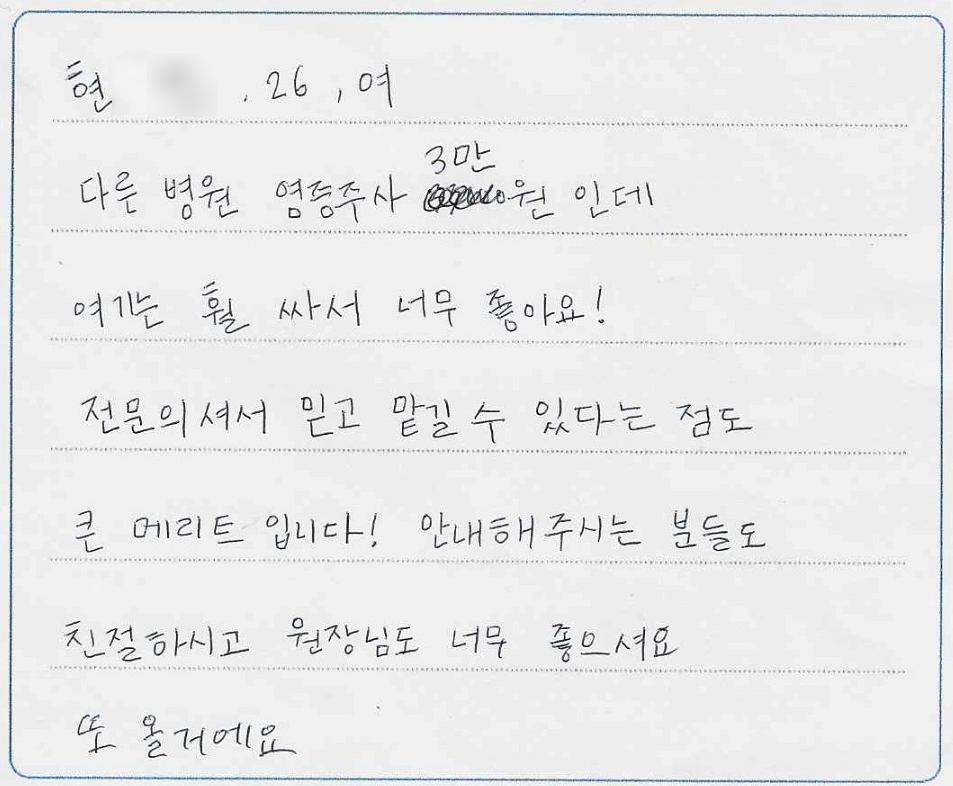 현 . 26 , 여
다른 병원 염증주사 3만원 인데
여기는 훨 싸서 너무 좋아요!
전문의셔서 믿고 맡길 수 있다는 점도
큰 메리트 입니다! 안내해주시는 분들도
친절하시고 원장님도 너무 좋으셔요
또 올거에요